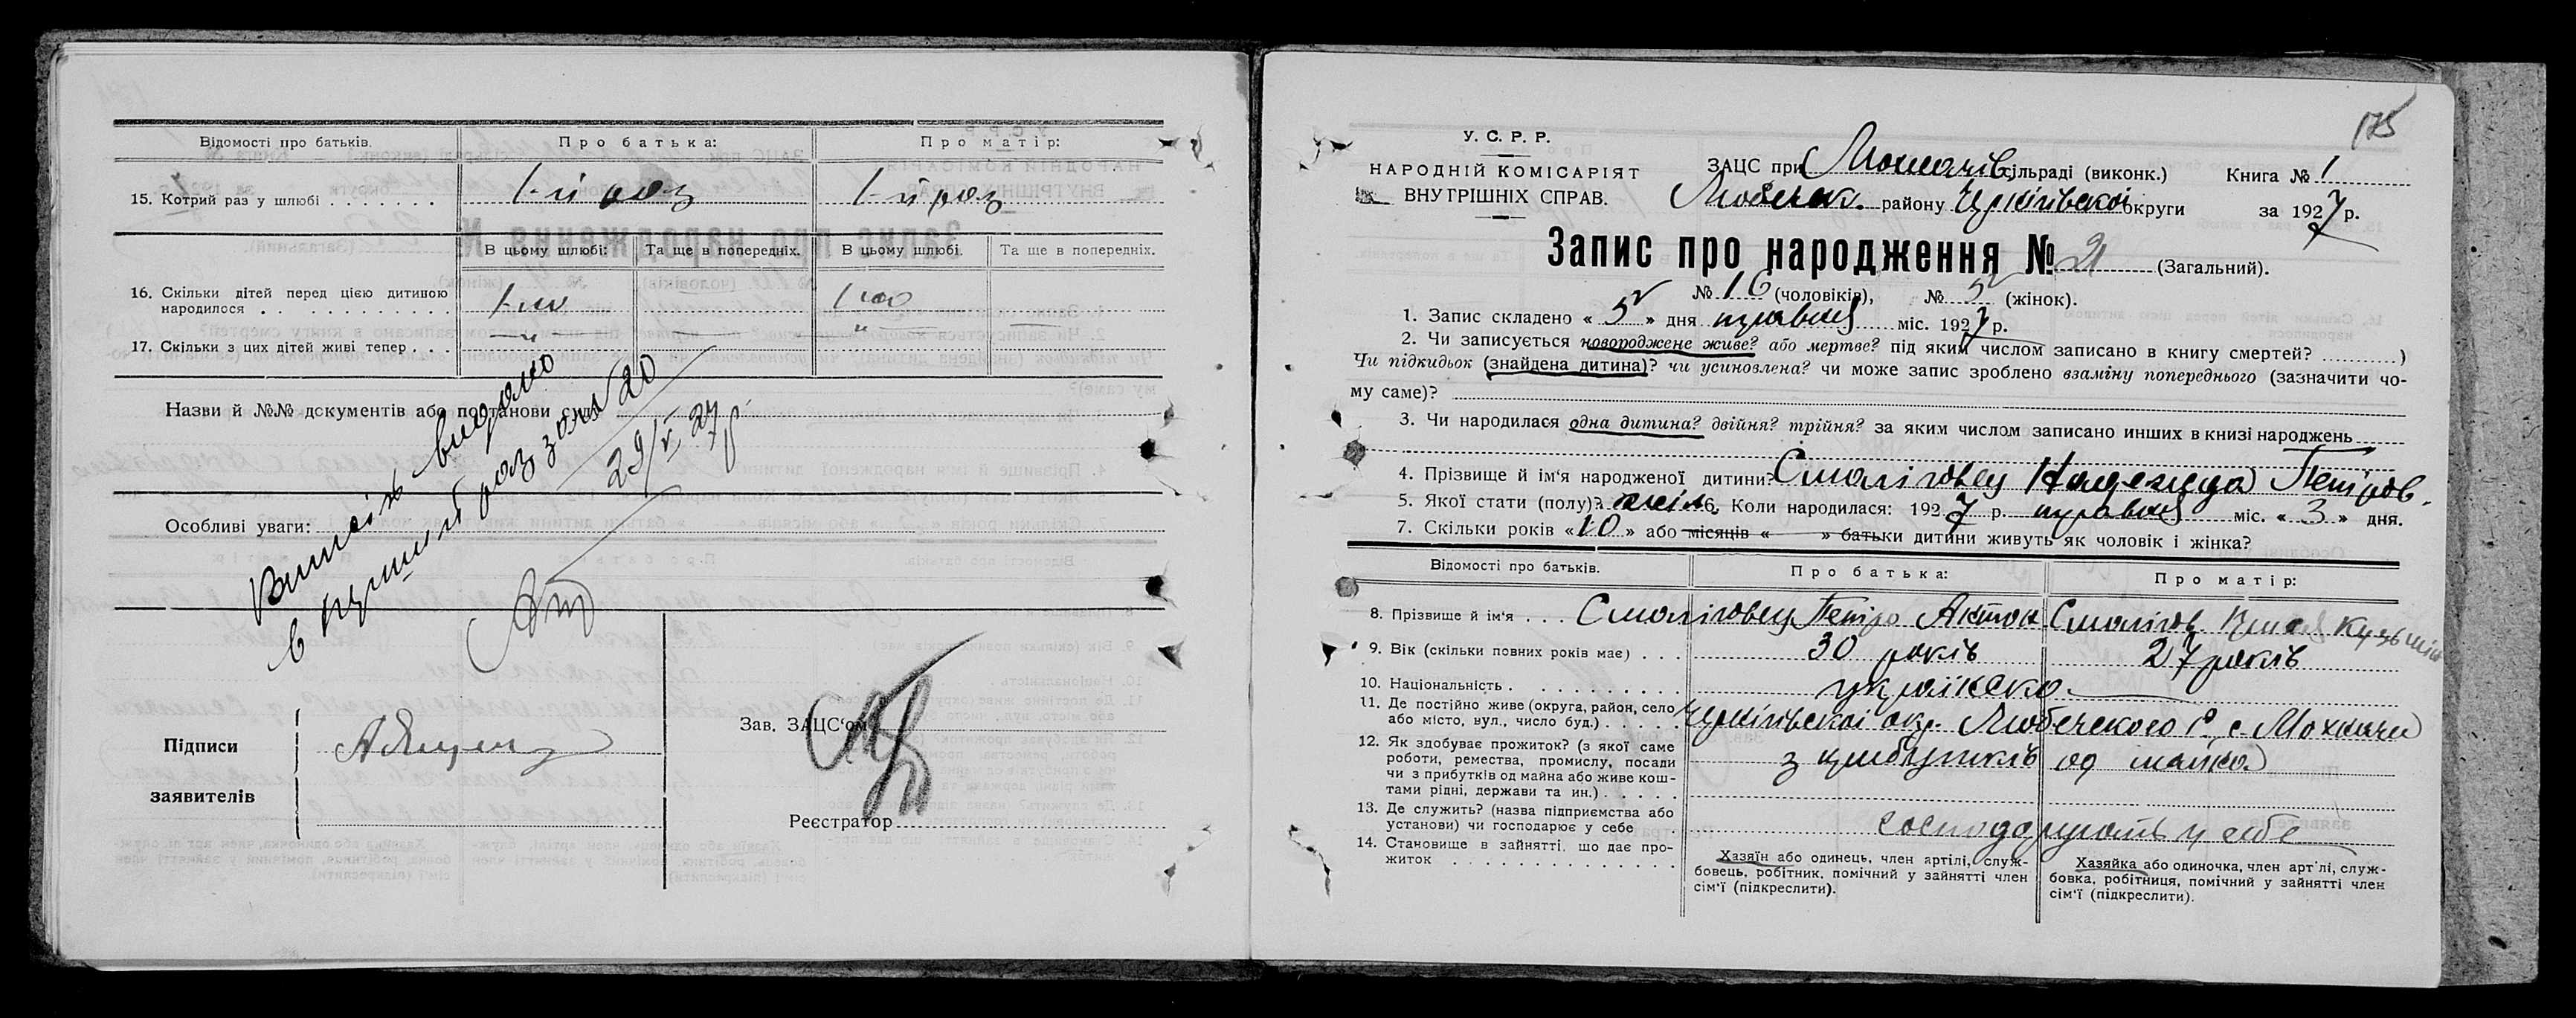 Відомості про батьків. Про батька: Про матір:
15. Котрий раз у шлюбі . . . . . . . 1-й раз 1-й раз
В цьому шлюбі: Та ще в попередніх. В цьому шлюбі. Та ще в попередніх.
16. Скільки дітей перед цією дитиною
народилося . . . . . . . . . . . .
17. Скільки з цих дітей живі тепер . . . — " — — " —
Назви й №№ документів або постанови суду
Особливі уваги:
видано
в перший раз за № 20
29/V 27 р.
Підписи
заявителів
Зав. ЗАЦС'ом
Реєстратор
175
У. С. Р. Р.
НАРОДНІЙ КОМІСАРІЯТ
ВНУТРІШНІХ СПРАВ.
ЗАЦС при сільраді (виконк.) Книга № 1
Любечск. району Чернігівскої округи за 1927 р.
Запис про народження № 21 (Загальний).
№ 16 (чоловіків), № 5 (жінок).
1. Запис складено « 5 » дня травня міс. 1927 р.
2. Чи записується новороджене живе? або мертве? під яким числом записано в книгу смертей? )
Чи підкидьок (знайдена дитина)? чи усиновлена? чи може запис зроблено взаміну попереднього (зазначити чо-
му саме)?
3. Чи народилася одна дитина? двійня? трійня? за яким числом записано инших в книзі народжень
4. Прізвище й ім'я народженої дитини? Смоліговец Надежда Петров.
5. Якої стати (полу)? жін. 6. Коли народилася: 1927 р. травня міс. « 3 » дня.
7. Скільки років « 10 » або місяців « » батьки дитини живуть як чоловік і жінка?
Відомості про батьків. Про батька: Про матір:
8. Прізвище й ім'я . . . Смоліговец Петро Антон Смолігов.
9. Вік (скільки повних років має) . . . 30 років 27 років
10. Національність . . . . . . . . . . україн
11. Де постійно живе (округа, район, село
або місто, вул., число буд.) . . . . . Чернігівскої окр. Любечского р. с. Мохначи
12. Як здобуває прожиток? (з якої саме
роботи, ремества, промислу, посади
чи з прибутків од майна або живе кош-
тами рідні, держави та ин.) . . . . . з прибутків од майна
13. Де служить? (назва підприємства або
установи) чи господарює у себе господарюють у себе
14. Становище в зайнятті, що дає про-
житок . . . . . . . . . . . . . .
Хазяїн або одинець, член артілі, служ-
бовець, робітник, помічний у зайнятті член
сім'ї (підкреслити).
Хазяйка або одиночка, член арт'лі, служ-
бовка, робітниця, помічний у зайнятті член
сім'ї (підкреслити).